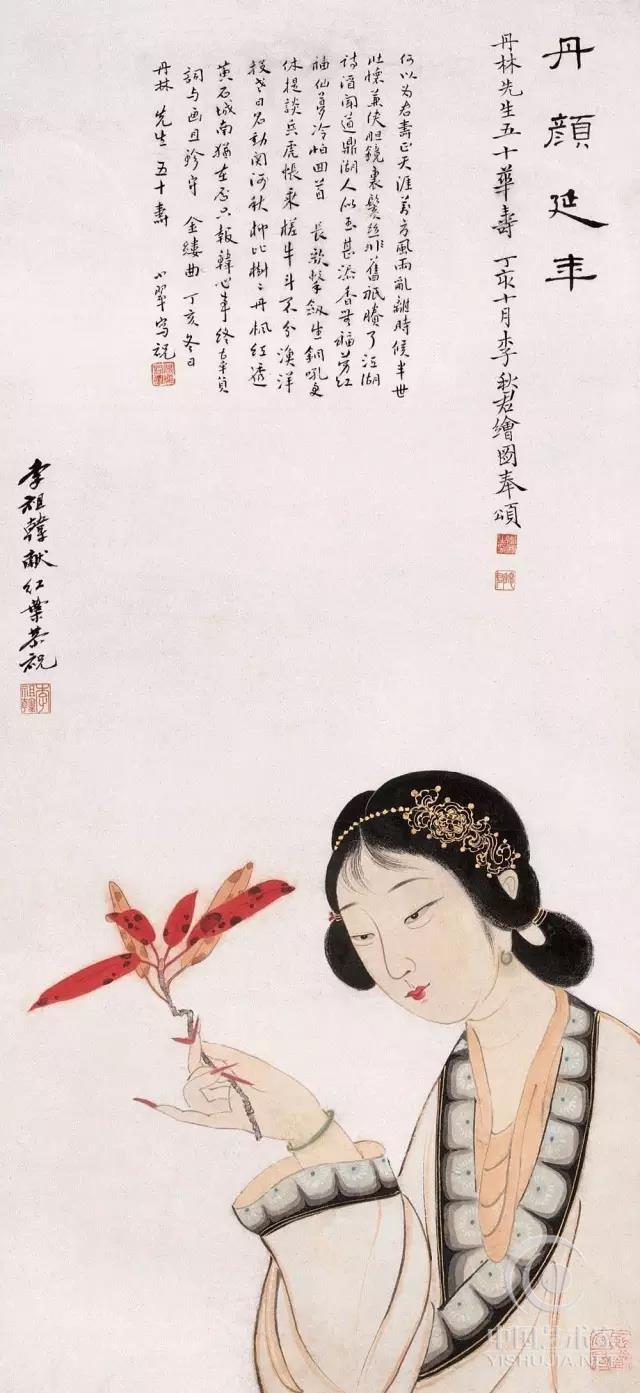 丹顏延年
丹林先生五十華壽 丁亥十月李秋君繪圖奉頌
何以为君壽正天涯萬方風雨亂離時候半世
此懷兼俠胆鏡裏鬢絲非舊祇賸了江湖
詩酒聞道鼎湖人似玉甚添香福芳红
袖仙夢冷怕回首 長歌擊劔生銅吼更
休提談兵虎帳乘槎牛斗不分漁洋
投老日名動関河秋柳比樹〻丹楓紅透
黄石城南猶在否只報韓心事终辜負
詞与画且珍守 金縷曲 丁亥冬日
丹林 先生五十壽 小翠写祝
李祖韓献红葉恭祝
李祖韓
中国艺术家
YISHUJIA.NET